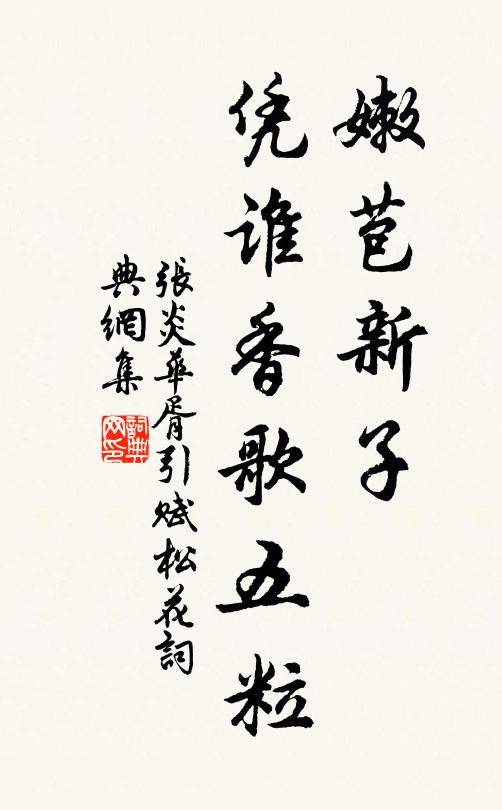 嫩苞新子
凭谁香歌五粒
張炎華胥引賦松花詞
典網集
詞典
网印